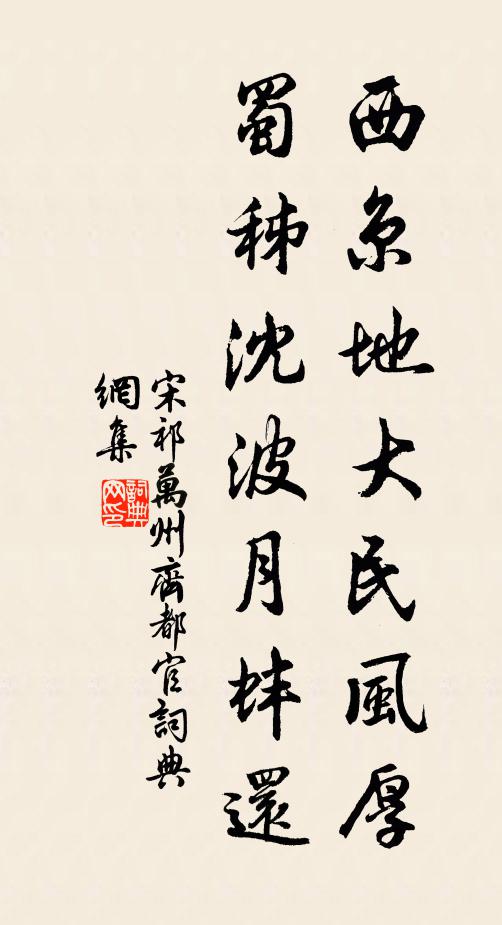 西京地大民風厚
蜀秭沈波月蚌還
宋祁萬州齊都官詞典
網集
詞典
网印